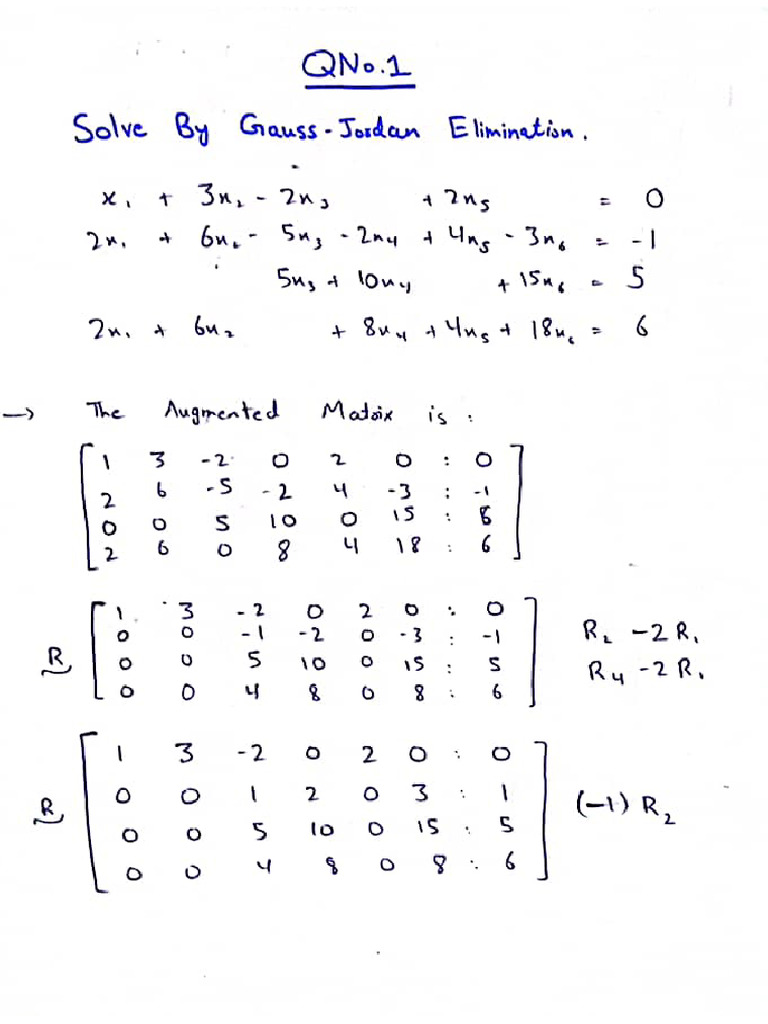 QNo.1
Solve By Gauss-Jordan Elimination.
x₁ + 3x₂ - 2x₃ + 2x₅ = 0
2x₁ + 6x₂ - 5x₃ - 2x₄ + 4x₅ - 3x₆ = -1
5x₃ + 10x₄ + 15x₆ = 5
2x₁ + 6x₂ + 8x₄ + 4x₅ + 18x₆ = 6
→ The Augmented Matrix is :
1 3 -2 0 2 0 : 0
2 6 -5 -2 4 -3 : -1
0 0 5 10 0 15 : 5
2 6 0 8 4 18 : 6
1 3 -2 0 2 0 : 0
0 0 -1 -2 0 -3 : -1 R₂ -2R₁
R 0 0 5 10 0 15 : 5 R₄ -2R₁
0 0 4 8 0 8 : 6
1 3 -2 0 2 0 : 0
R 0 0 1 2 0 3 : 1 (-1) R₂
0 0 5 10 0 15 : 5
0 0 4 8 0 8 : 6